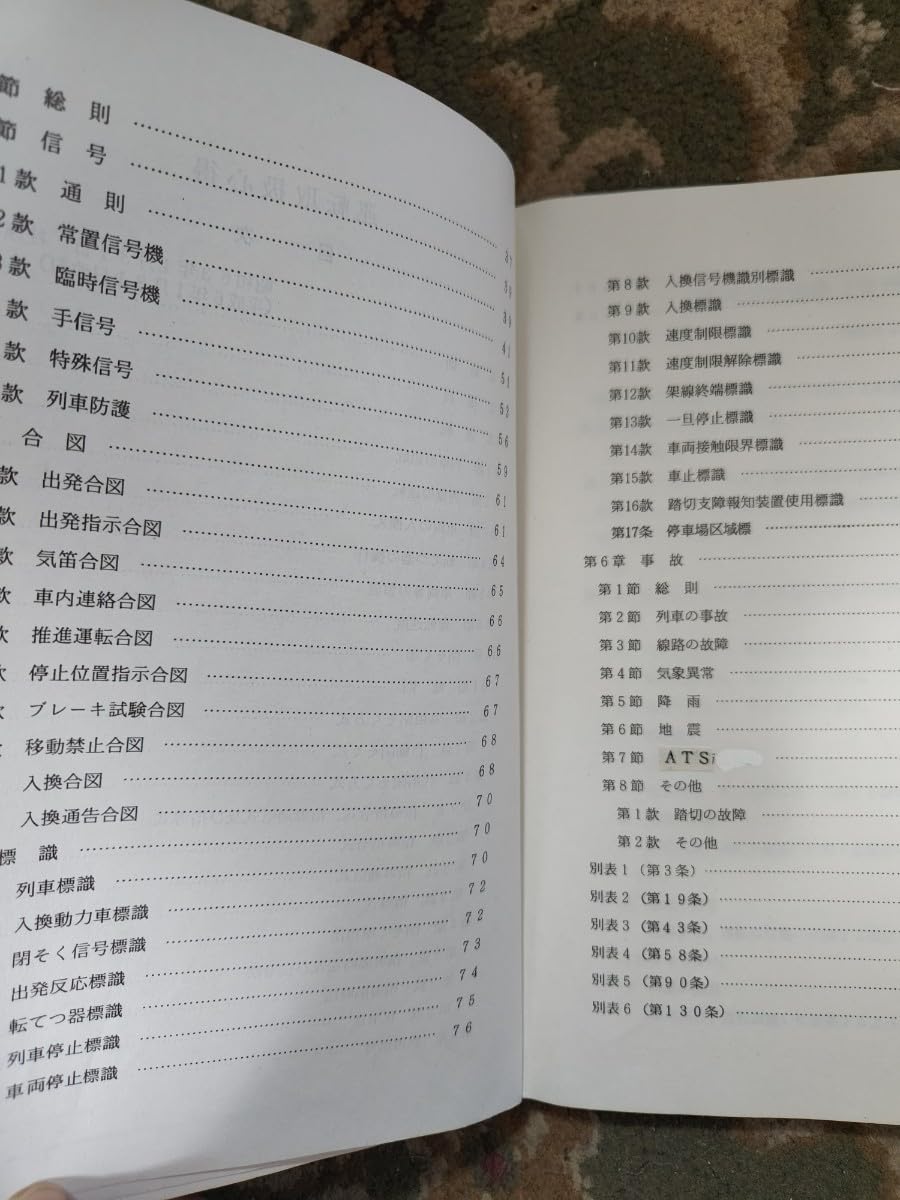 節 総 則 ……… 37
節 信 号 ……… 38
1款 通 則 ……… 39
2款 常置信号機 ……… 41
3款 臨時信号機 ……… 51
款 手信号 ……… 52
款 特殊信号 ……… 56
款 列車防護 ……… 59
合 図 ……… 61
款 出発合図 ……… 61
款 出発指示合図 ……… 64
款 気笛合図 ……… 65
款 車内連絡合図 ……… 66
款 推進運転合図 ……… 66
款 停止位置指示合図 ……… 67
ブレーキ試験合図 ……… 67
移動禁止合図 ……… 68
入換合図 ……… 68
入換通告合図 ……… 70
標 識 ……… 70
列車標識 ……… 70
入換動力車標識 ……… 72
閉そく信号標識 ……… 72
出発反応標識 ……… 73
転てつ器標識 ……… 74
列車停止標識 ……… 75
車両停止標識 ……… 76
第8款 入換信号機識別標識 ………
第9款 入換標識 ………
第10款 速度制限標識 ………
第11款 速度制限解除標識 ………
第12款 架線終端標識 ………
第13款 一旦停止標識 ………
第14款 車両接触限界標識 ………
第15款 車止標識 ………
第16款 踏切支障報知装置使用標識 ………
第17条 停車場区域標 ………
第6章 事 故 ………
第1節 総 則 ………
第2節 列車の事故 ………
第3節 線路の故障 ………
第4節 気象異常 ………
第5節 降 雨 ………
第6節 地 震 ………
第7節 ATS ………
第8節 その他 ………
第1款 踏切の故障 ………
第2款 その他 ………
別表1(第3条) ………
別表2(第19条) ………
別表3(第43条) ………
別表4(第58条) ………
別表5(第90条) ………
別表6(第130条) ………